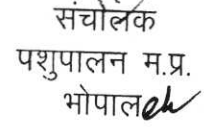 संचालक
पशुपालन म.प्र.
भोपाल